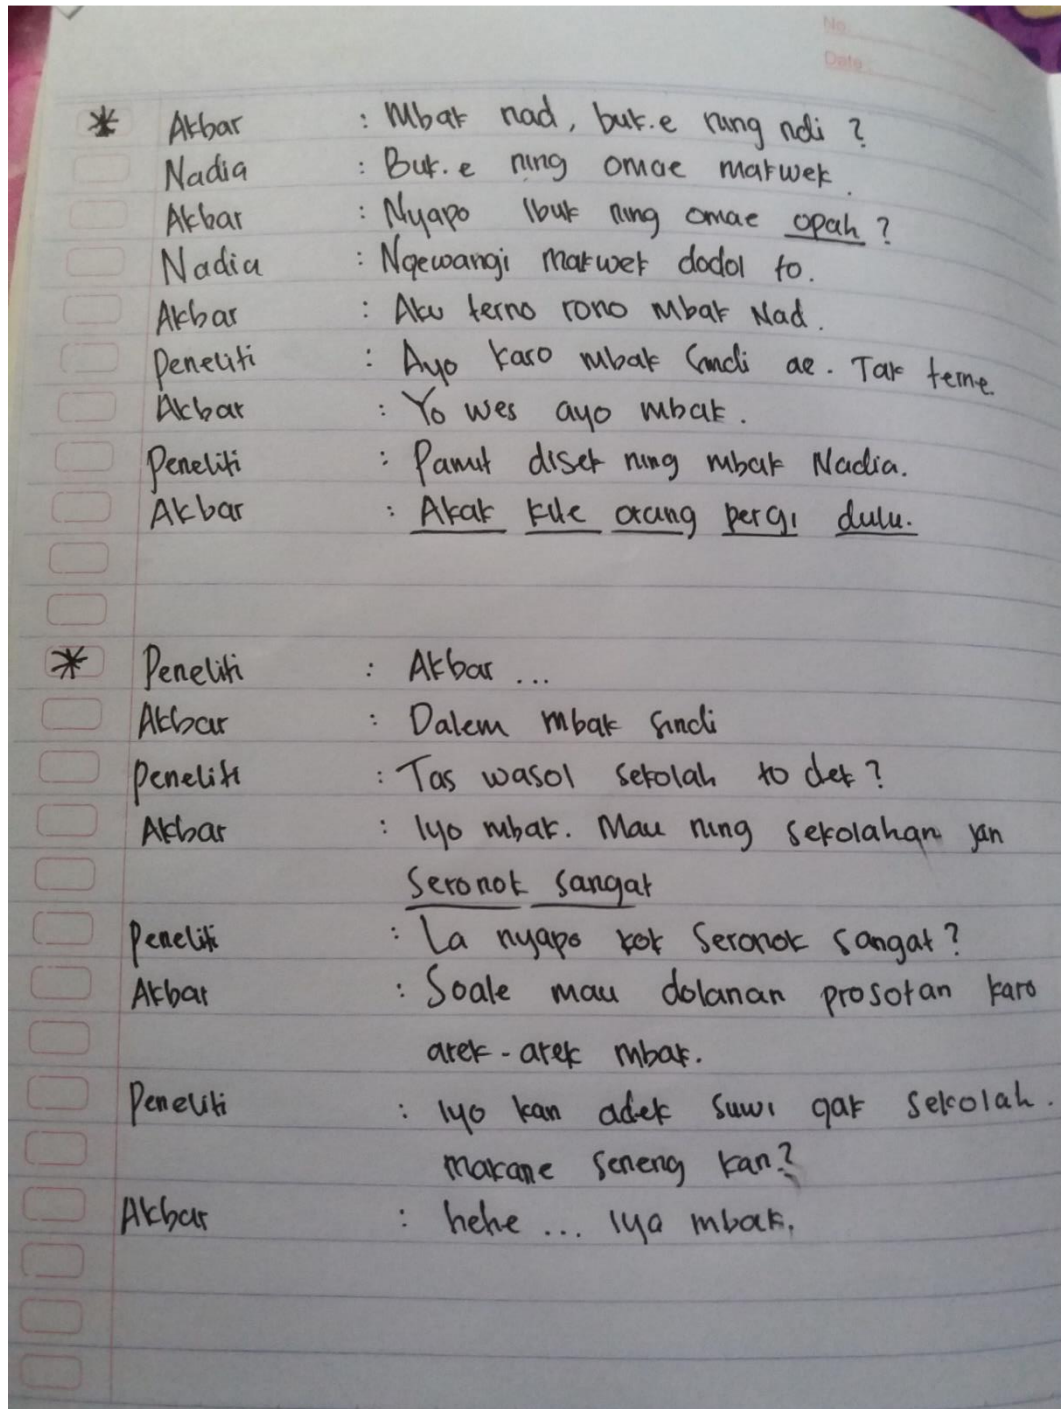 No.
Date:
* Akbar : Mbak nad, buk.e ning ndi ?
Nadia : Buk.e ning omae makwek.
Akbar : Nyapo Ibuk ning omae opah ?
Nadia : Ngewangi makwek dodol to.
Akbar : Aku terno rono mbak Nad.
Peneliti : Ayo karo mbak Sindi ae. Tak terne
Akbar : Yo wes ayo mbak.
Peneliti : Pamit disek ning mbak Nadia.
Akbar : Akak kite orang pergi dulu.
* Peneliti : Akbar ...
Akbar : Dalem mbak Sindi
Peneliti : Tas wasol sekolah to dek ?
Akbar : Iyo mbak. Mau ning sekolahan yan
Seronok sangat
Peneliti : La nyapo kok Seronok sangat ?
Akbar : Soale mau dolanan prosotan karo
arek - arek mbak.
Peneliti : Iyo kan adek suwi gak sekolah.
makane seneng kan ?
Akbar : hehe ... Iya mbak.